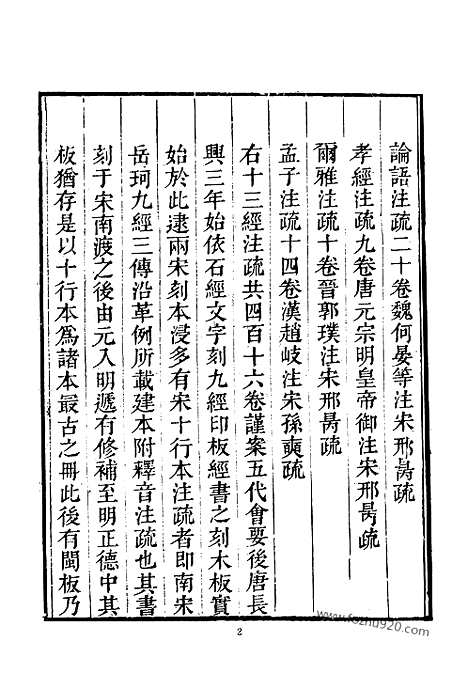 論語注疏二十卷魏何晏等注宋邢昺疏
孝經注疏九卷唐元宗明皇帝御注宋邢昺疏
爾雅注疏十卷晉郭璞注宋邢昺疏
孟子注疏十四卷漢趙岐注宋孫奭疏
右十三經注疏共四百十六卷謹案五代會要後唐長
興三年始依石經文字刻九經印板經書之刻木板實
始於此逮兩宋刻本浸多有宋十行本注疏者即南宋
岳珂九經三傳沿革例所載建本附釋音注疏也其書
刻于宋南渡之後由元入明遞有修補至明正德中其
板猶存是以十行本爲諸本最古之冊此後有閩板乃
2
www.fozhu920.com